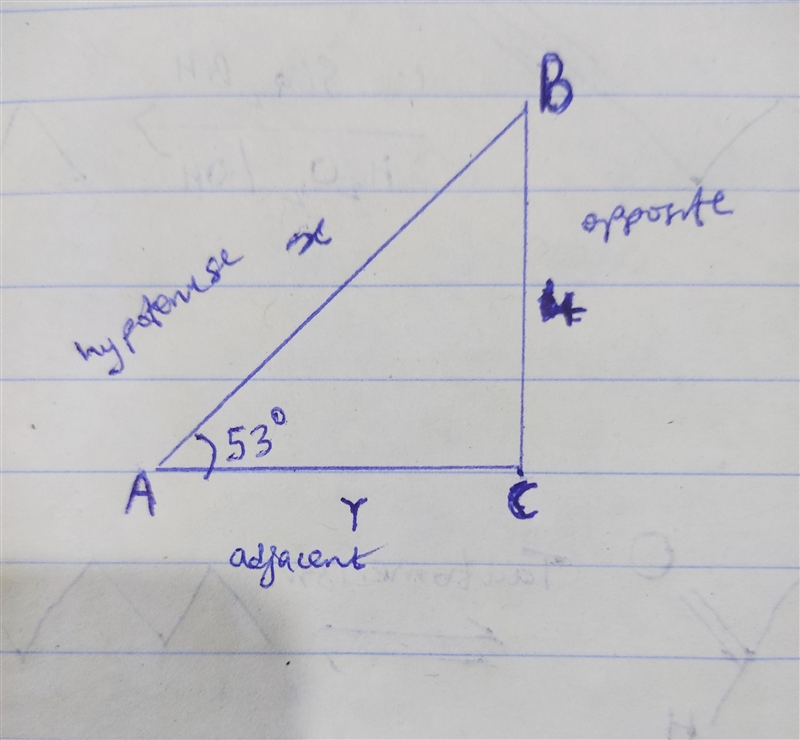 B
opposite
x
hypotenuse
4
53°
A
C
Y
adjacent